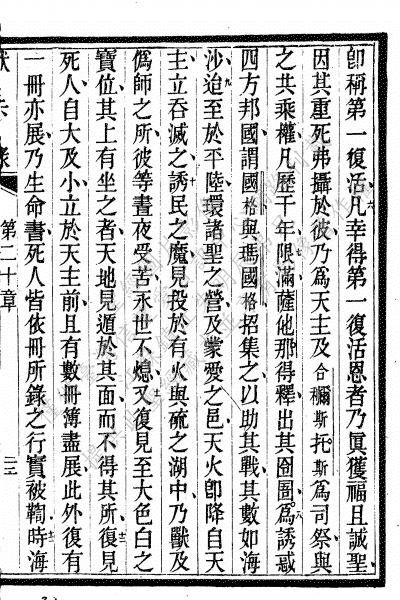 卽稱第一復活凡幸得第一復活恩者乃眞獲福且誠聖
因其重死弗攝於彼乃爲天主及合彌斯托斯爲司祭與
之共乘權凡歷千年限滿薩他那得釋出其囹圄爲誘惑
四方邦國謂國格與瑪國格招集之以助其戰其數如海
沙迨至於平陸環諸聖之營及蒙愛之邑天火卽降自天
主立吞滅之誘民之魔見投於有火與硫之湖中乃獸及
僞師之所彼等晝夜受苦永世不熄又復見至大色白之
寶位其上有坐之者天地見遁於其面而不得其所復見
死人自大及小立於天主前且有數冊簿盡展此外復有
一冊亦展乃生命書死人皆依冊所錄之行實被鞫時海
第二十章